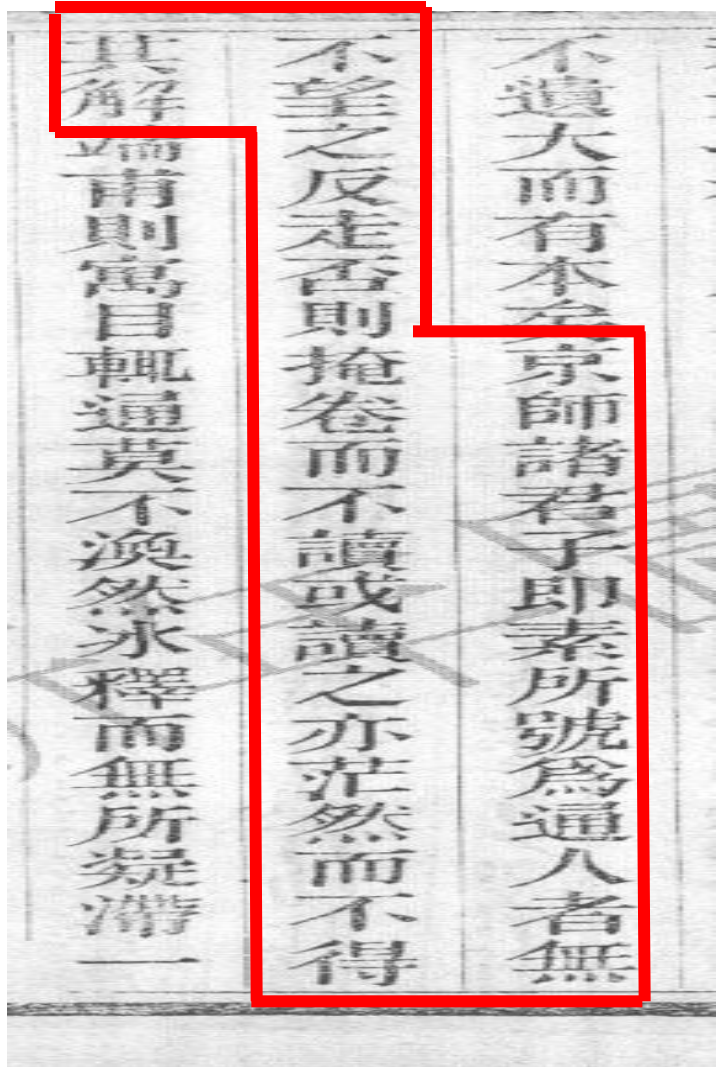 不遺大而有本矣京師諸君子即素所號為通人者無
不望之反走否則掩卷而不讀或讀之亦茫然而不得
其解端甫則寓目輒通莫不渙然冰釋而無所凝滯一